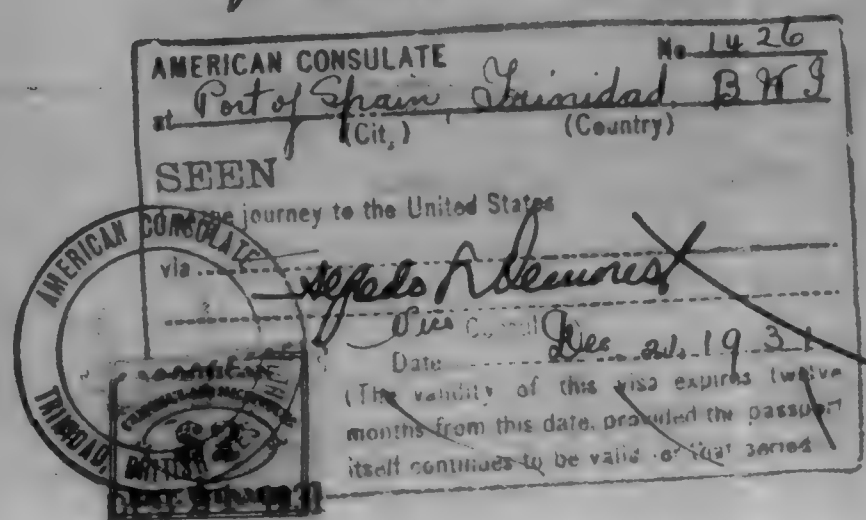 AMERICAN CONSULATE No 1426
at Port of Spain, Trinidad, B W I
(City) (Country)
SEEN
journey to the United States
via
Consul
Date Dec 1931
(The validity of this visa expires twelve
months from this date, provided the passport
itself continues to be valid for that period
AMERICAN CONSULATE
TRINIDAD, BRITISH